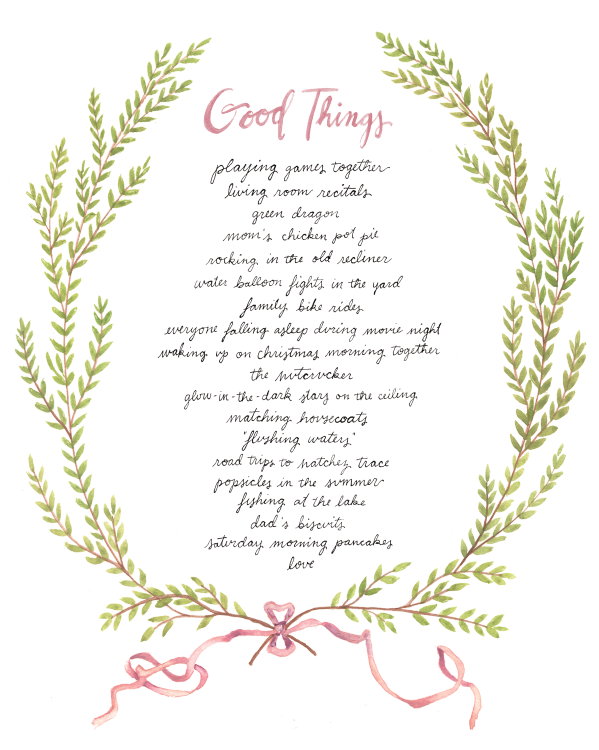 Good Things
playing games together
living room recitals
green dragon
mom's chicken pot pie
rocking in the old recliner
water balloon fights in the yard
family bike rides
everyone falling asleep during movie night
waking up on christmas morning together
the nutcracker
glow-in-the-dark stars on the ceiling
matching housecoats
"flushing waters"
road trips to natchez trace
popsicles in the summer
fishing at the lake
dad's biscuits
saturday morning pancakes
love